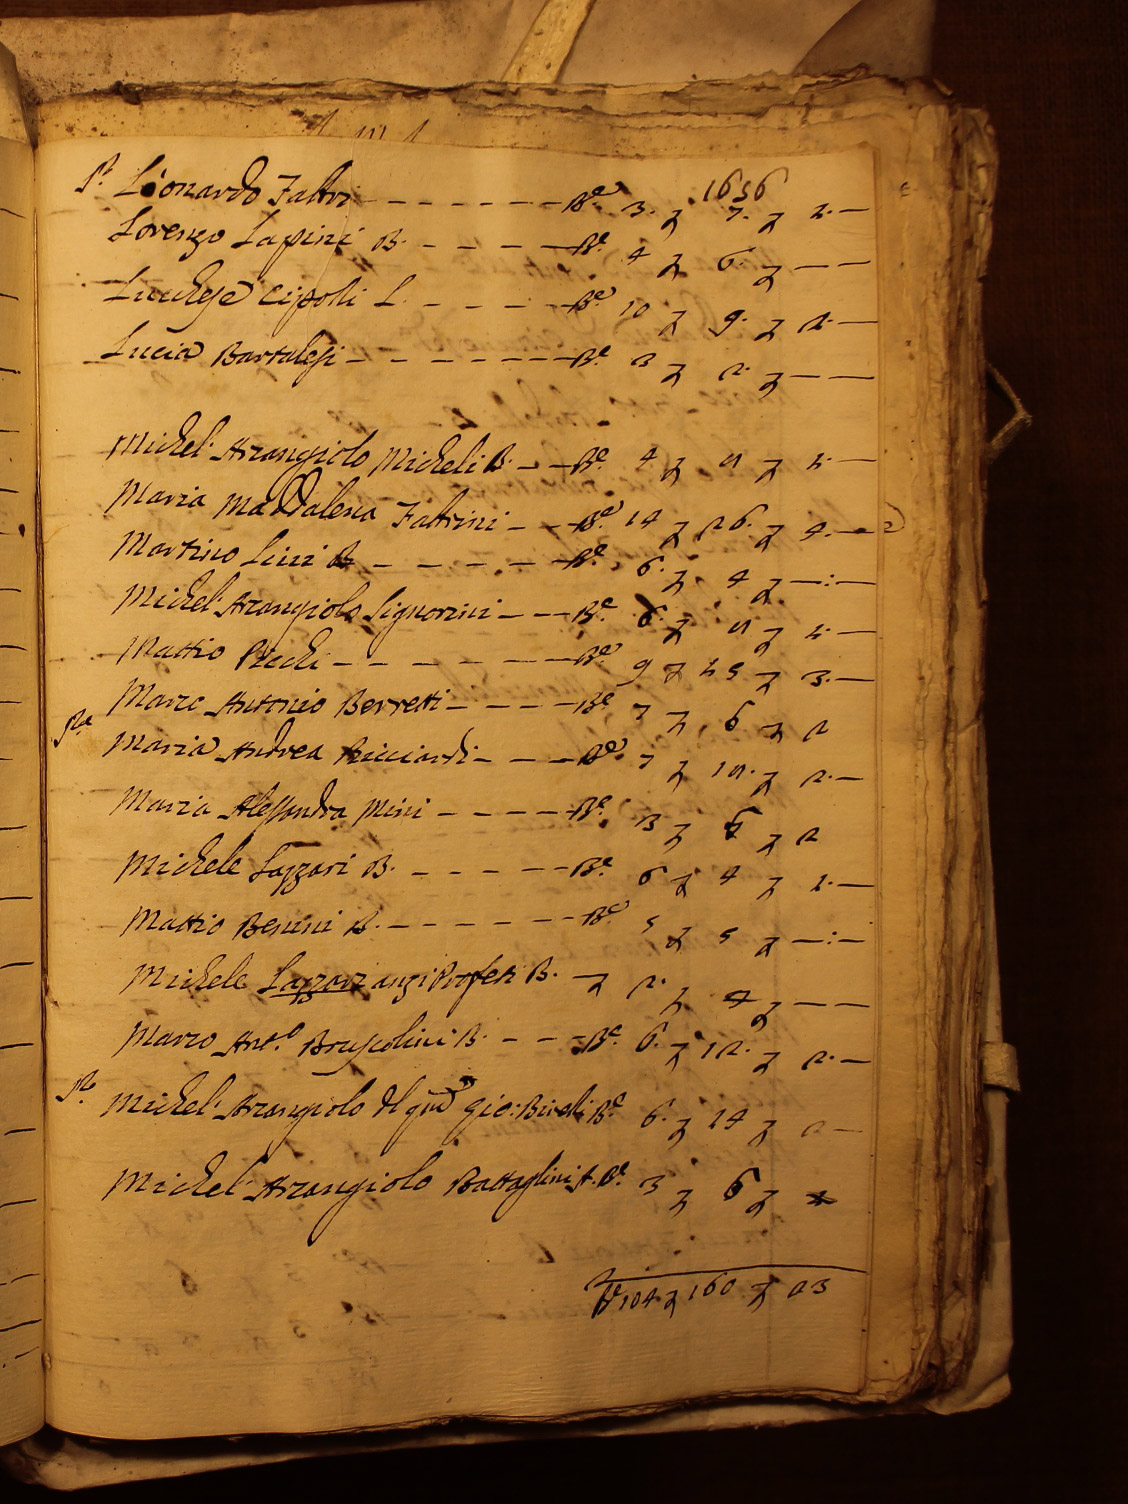 1656
Lionardo Fattri - - - - - - Be 3. 7 7. 7 2. -
Lorenzo Lapini B. - - - - Be. 4 7 6. 7 - -
Lucchese Cipolli L. - - - - Be. 10 7 9. 7 2. -
Lucia Bartalesi - - - - - - Be. 3 7 2. 7 - -
Michel' Arcangiolo Micheli B. - - Be. 4 7 7
Maria Maddalena Fattrini - - Be. 14 7 26. 7 4. -
Martino Lini B - - - - - Be. 6. 7 4 7 -:-
Michel' Arcangiolo Signorini - - Be. 6. 7 7
Mattio - - - - - Be. 9 7 7 3. -
Marc Antonio Berretti - - - - Be 7 7 6 7 2
Maria Andrea Ricciardi - - - Be. 7 7 7 2. -
Maria Alessandra Mini - - - - Be. 13 7 7 2
Michele Lazzari B. - - - - Be. 6 7 4 7 2. -
Mattio Benini B. - - - - - Be. 5 7 5 7 -:-
Michele Lazzari anzi Profeti B. - 7 2. 7 4 7 - -
Marco Ant.o Bruscolini B. - - - Be. 6. 7 12. 7 2. -
Michel' Arcangiolo gio: Be. 6. 7 14 7 2 -
Michel' Arcangiolo Battaglini Be. 3 7 6 7
104 7 160 7 23